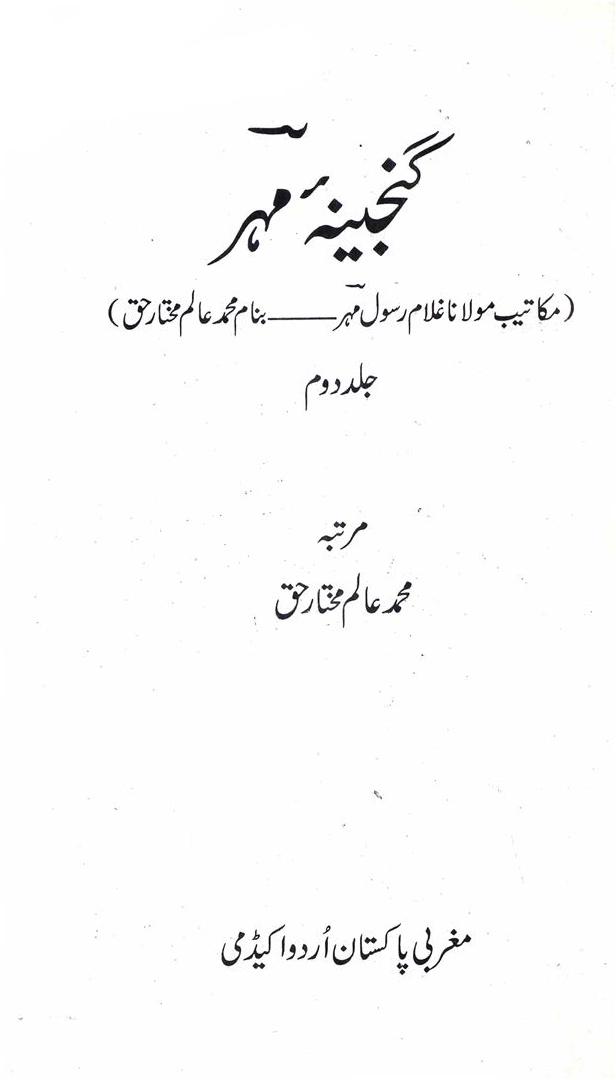 گنجینۂ مہرؔ
(مکاتیب مولانا غلام رسول مہرؔ ——— بنام محمد عالم مختار حق)
جلد دوم
مرتبہ
محمد عالم مختار حق
مغربی پاکستان اُردو اکیڈمی